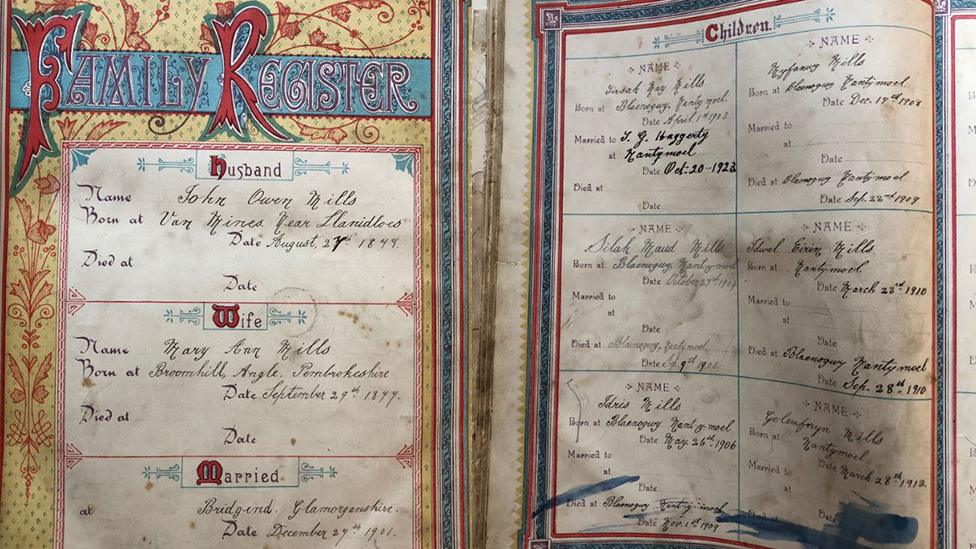 Family Register
Husband
Name John Owen Mills
Born at Van Mines Near Llanidloes
Date August, 27th 1877.
Died at
Date
Wife
Name Mary Ann Mills
Born at Broomhill, Angle, Pembrokeshire
Date September 29th 1877.
Died at
Date
Married
at Bridgend, Glamorganshire.
Date December 27th 1901.
Children.
NAME
Tirzah May Mills
Born at Blaenogwy, Nantymoel.
Date April 1st 1903
Married to T. G. Haggerty
at Nantymoel
Date Oct: 20-1923
Died at
Date
NAME
Silah Maud Mills
Born at Blaenogwy Nant-y-moel
Date October 29th
Married to
at
Date
Died at Blaenogwy, Nantymoel
Date Sep. 9th 1906
NAME
Idris Mills
Born at Blaenogwy Nant-y-moel
Date May. 26th 1906
Married to
at
Date
Died at Blaenogwy Nant-y-moel
Date Nov. 1st 1909
NAME
Myfanwy Mills
Born at Blaenogwy Nantymoel
Date Dec. 19th 1908
Married to
at
Date
Died at Blaenogwy Nantymoel
Date Sep. 22nd 1909
NAME
Idwel Eirin Mills
Born at Nantymoel
Date March 23rd 1910
Married to
at
Date
Died at Blaenogwy Nantymoel
Date Sep. 28th 1910
NAME
Goleufryn Mills
Born at Nantymoel
Date March 28th 1912
Married to
at
Date
Died at